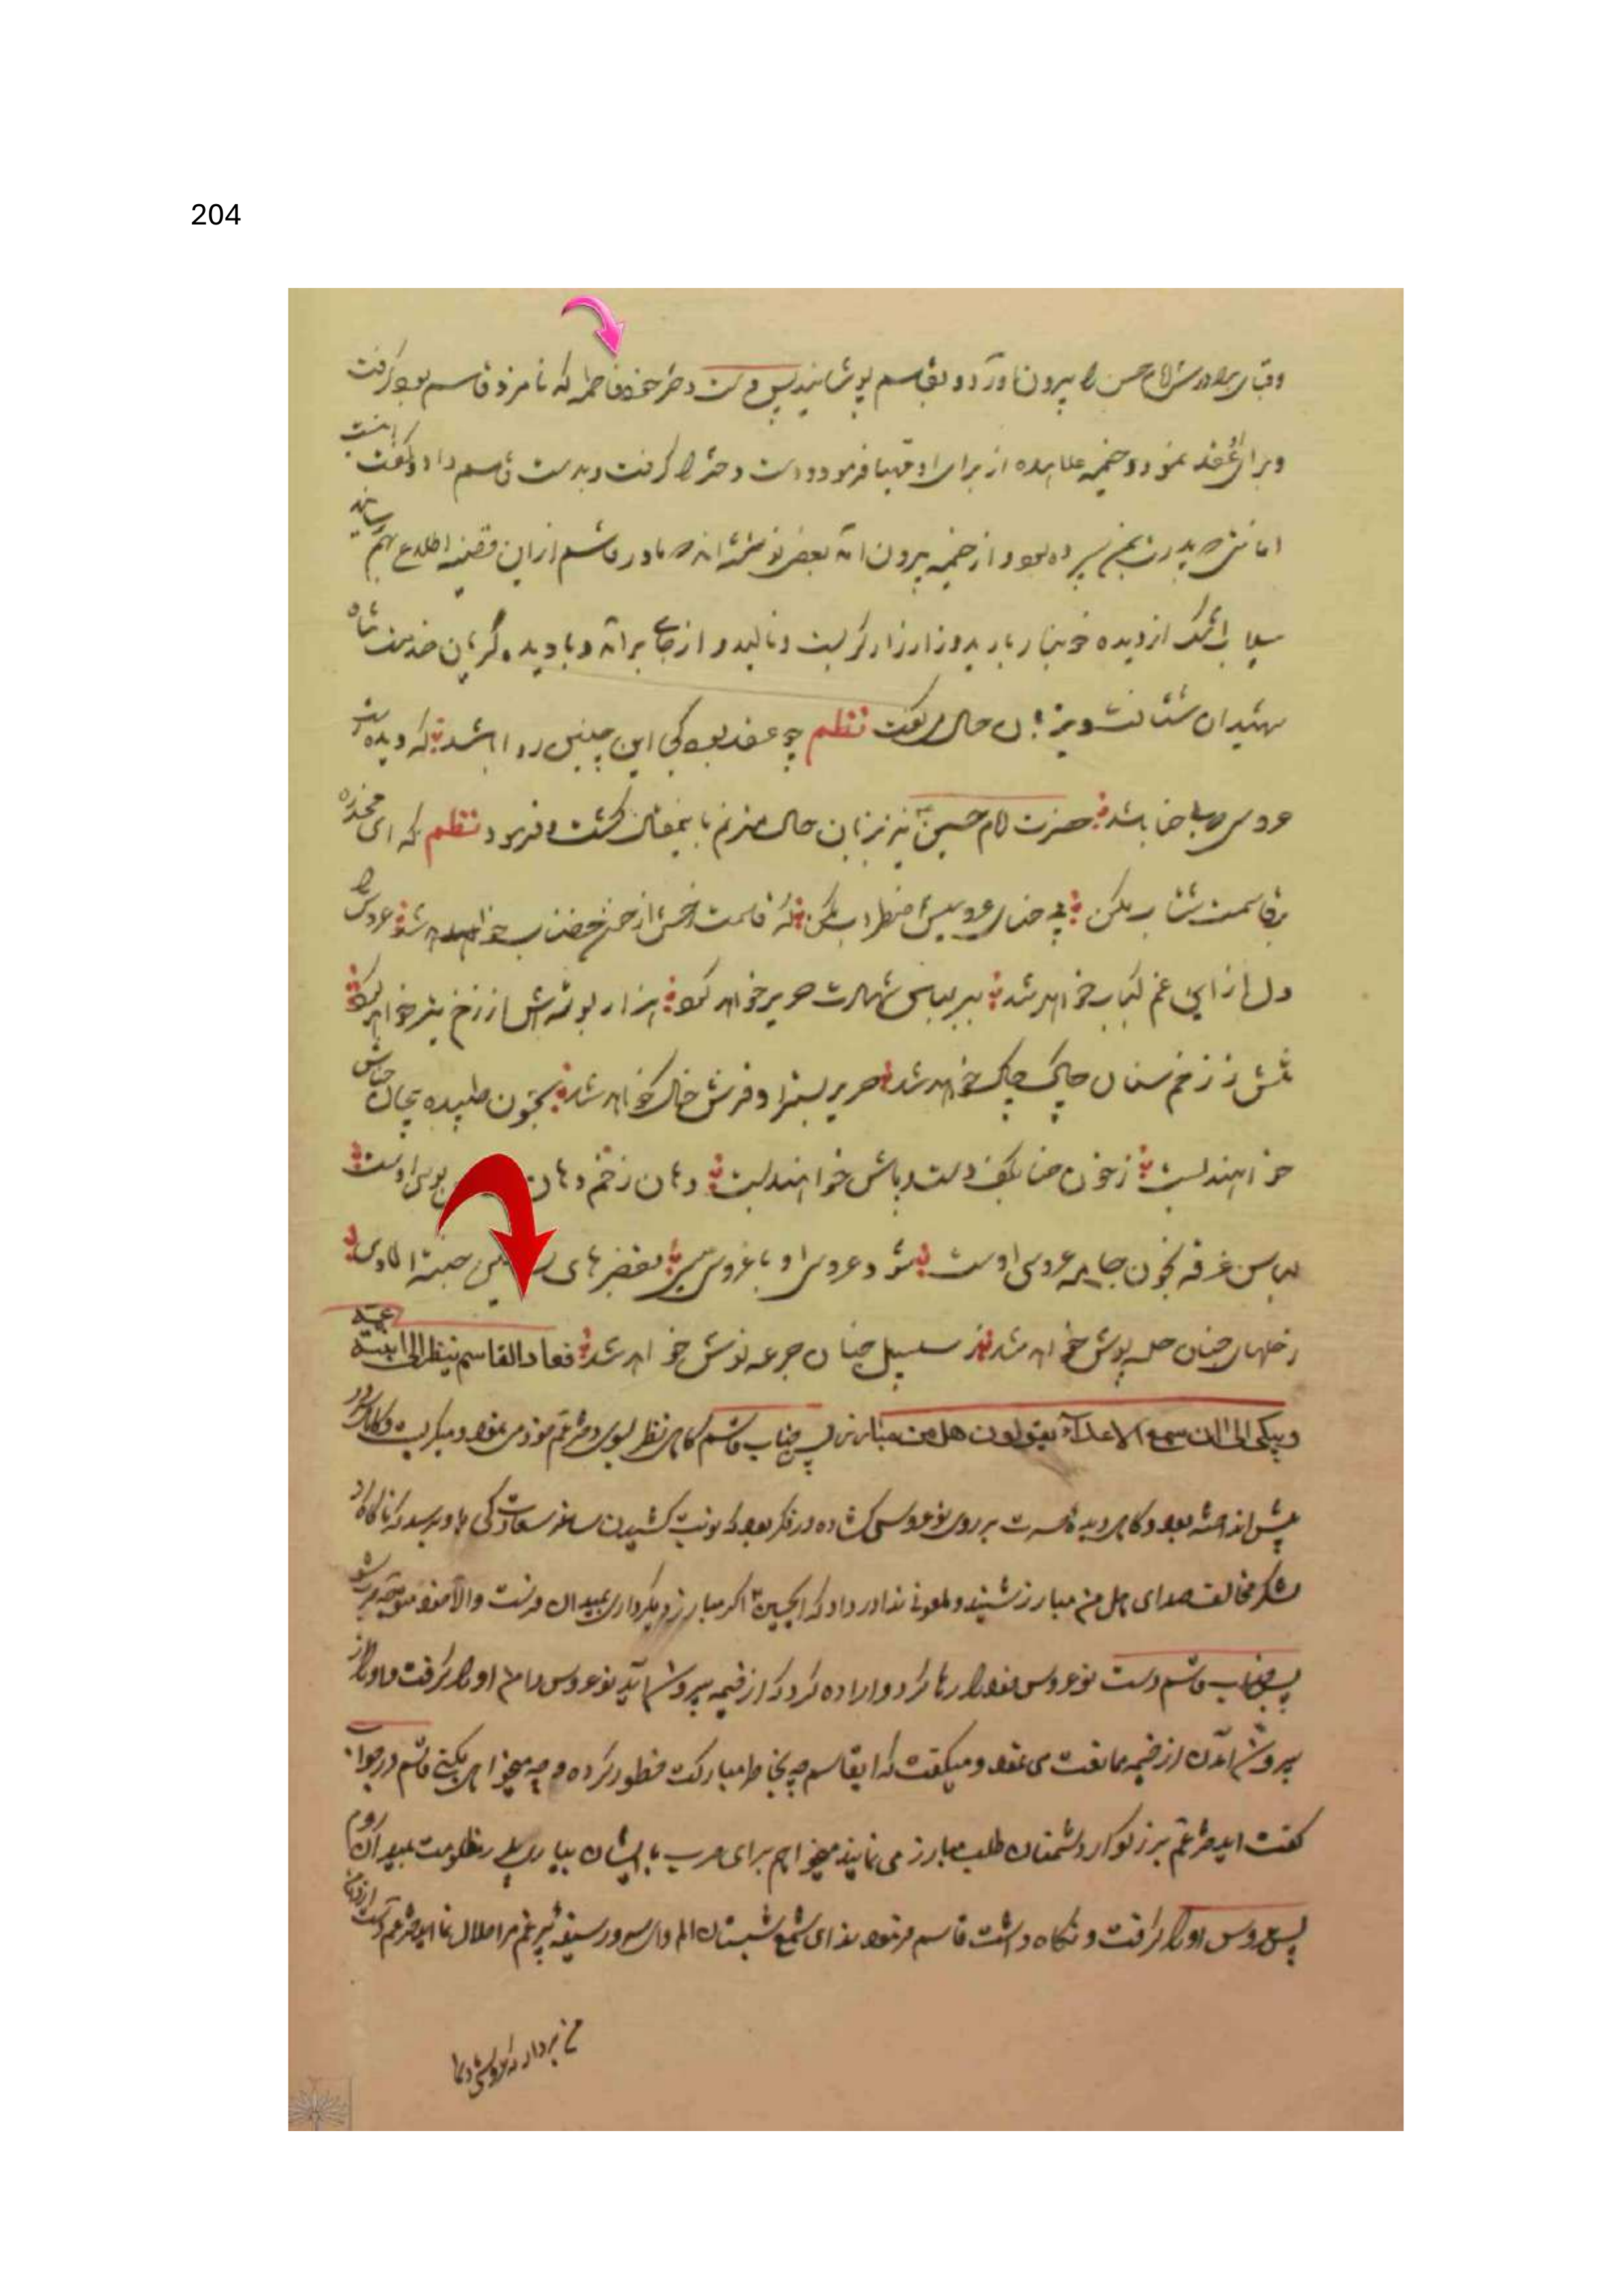 204
وقبای برادرش امام حسن را بیرون آورد و بقاسم پوشانید پس دست دختر خود فاطمه که نامزد قاسم بود گرفت
و برای او عقد نمود و خیمه علیحده از برای او مهیا فرمود و دست دختر را گرفت و بدست قاسم داد و گفت اینست
امانتی پدرت بمن سپرده بود و از خیمه بیرون آمد بعضی نوشته اند مادر قاسم از این قضیه اطلاع بهم رسانید
سیلاب اشک از دیده خونبار بارید و زار زار گریست و نالید و از جای برآمد و با دیده گریان خدمت شاه
شهیدان شتافت و بزبان حال گفت نظم چه عقد بود کی این چنین روا باشد که دیده
عروسی حنا باشد حضرت امام حسین نیز بزبان حال مترنم باینمقال گشت و فرمود نظم که ای مخدره
بر قاسمت شتاب مکن پی حنای عروسیش اضطراب مکن که قاسمت از خون خضاب خواهد شد عروس را
دل از این غم کباب خواهد شد ببر لباس شهادت حریر خواهد کرد هزار بوسه اش از زخم تیر خواهد کرد
تنش ز زخم سنان چاک چاک خواهد شد حریر بستر او فرش خاک خواهد شد بخون طپیده
خواهند بست ز خون حنا بکف دست و پاش خواهند بست دهان زخم دهان بوسی اوست
لباس غرقه بخون جامه عروسی اوست شود عروسی او با عروس بقصرهای جنة المأوی
ز حلهای جنان حله پوش خواهد شد ز سلسبیل جنان جرعه نوش خواهد شد فعاد القاسم ینظر الی ابنة عمه
ویبکی الی ان سمع الاعداء یقولون هل من مبارز پس جناب قاسم گاهی نظر بسوی دختر عم خود می نمود و میگریست و گاهی سر در
پیش انداخته بود و گاهی دیده حسرت بر روی نوعروس گشاده در فکر بود که نوبت کشیدن ساغر سعادت کی باو برسد که ناگاه از
لشکر مخالف صدای هل من مبارز شنید و ملعونی ندا در داد که ایحسین اگر مبارز دیگر داری بمیدان فرست والا خود متوجه حرب شو
پس جناب قاسم دست نوعروس خود را رها کرد و اراده کرد که از خیمه بیرون آید نوعروس دامن او را گرفت و او را از
بیرون آمدن از خیمه ممانعت می نمود و میگفت که ایقاسم چه بخاطر مبارکت خطور کرده و چه میخواهی بکنی قاسم در جواب
گفت ایدختر عم بزرگوار دشمنان طلب مبارز می نمایند میخواهم برای حرب بایشان بیاری بمیدان روم
پس عروس او را گرفت و نگاه داشت قاسم فرمود ای شمع شبستان الم در سفینه پر غم مرا ملال نما ایدختر عم دست از دامن
من بردار